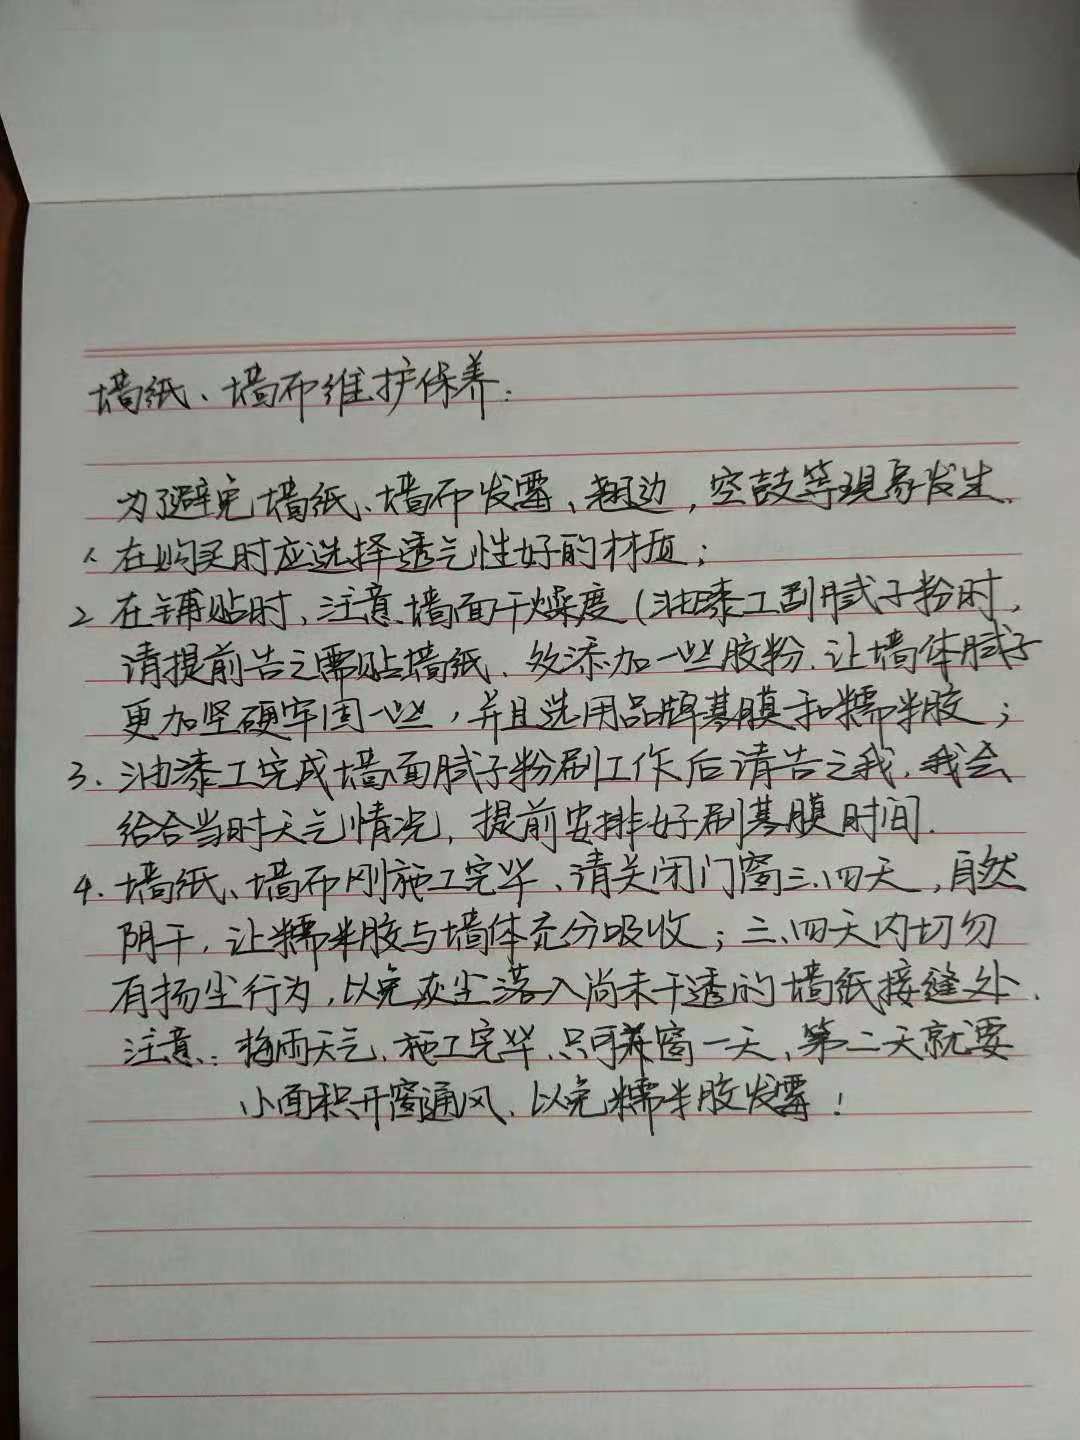 墙纸、墙布维护保养:
为了避免墙纸、墙布发霉、翘边,空鼓等现象发生.
1、在购买时应选择透气性好的材质;
2、在铺贴时、注意墙面干燥度(油漆工刮腻子粉时,
请提前告之需贴墙纸、 添加一些胶粉、让墙体腻子
更加坚硬牢固一些,并且选用品牌基膜和糯米胶;
3、油漆工完成墙面腻子粉刷工作后请告之我、我会
给合当时天气情况,提前安排好刷基膜时间.
4、墙纸、墙布刚施工完毕、请关闭门窗三、四天,自然
阴干,让糯米胶与墙体充分吸收;三、四天内切勿
有扬尘行为,以免灰尘落入尚未干透的墙纸接缝处.
注意:梅雨天气、施工完毕、只可 窗一天、第二天就要
小面积开窗通风、以免糯米胶发霉!